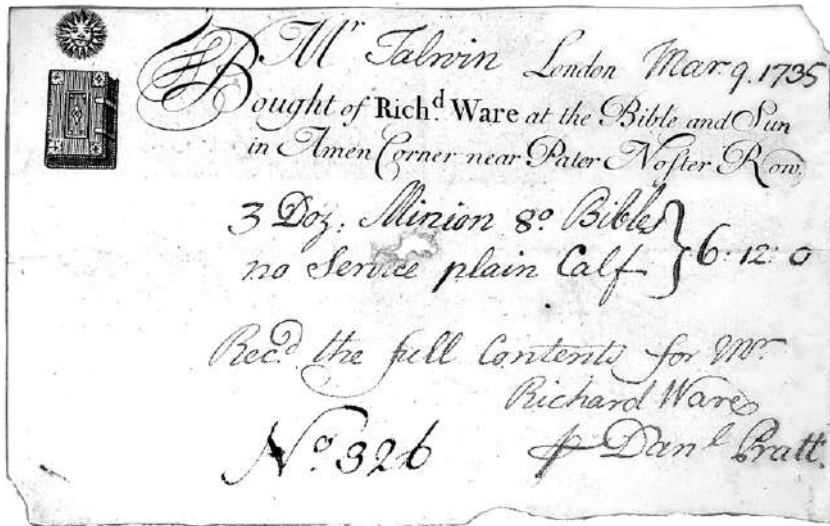 Mr Talwin London Mar. 9. 1735
Bought of Richd. Ware at the Bible and Sun
in Amen Corner near Pater Noster Row.
3 Doz: Minion 8o. Bibles
no Service plain Calf } 6: 12: 0
Recd. the full Contents for Mr.
Richard Ware
No. 326
Danl. Pratt.